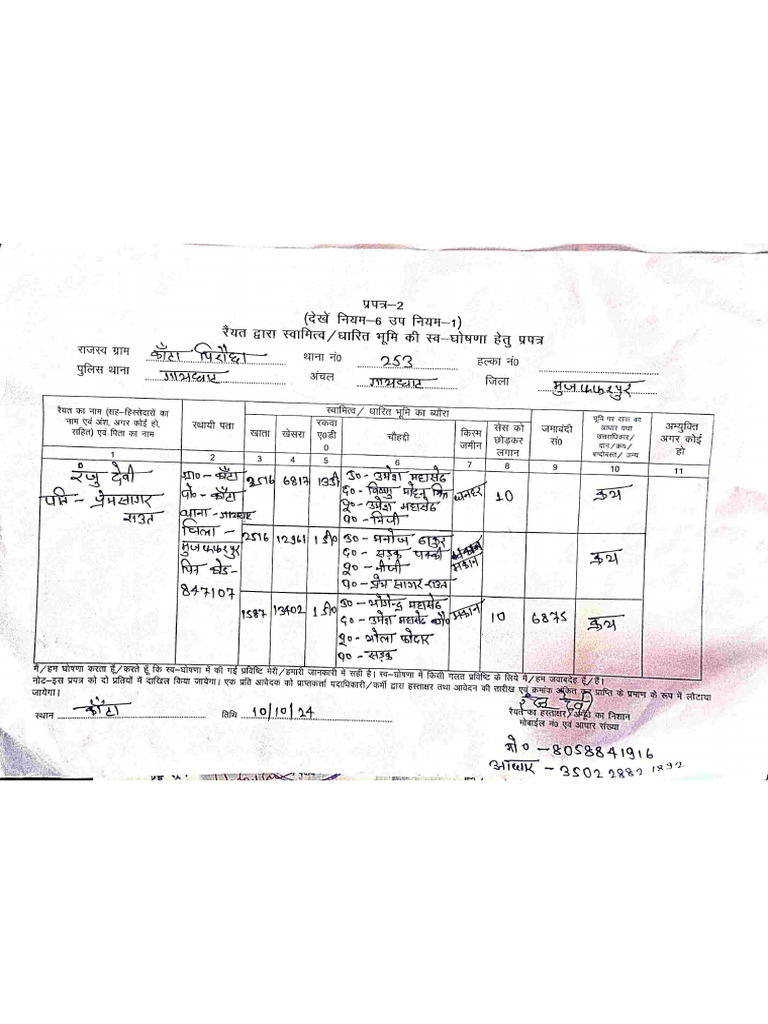 प्रपत्र–2
(देखें नियम–6 उप नियम–1)
रैयत द्वारा स्वामित्व/धारित भूमि की स्व–घोषणा हेतु प्रपत्र
राजस्व ग्राम काँटा पिरौछा थाना नं0 253 हल्का नं0
पुलिस थाना गायघाट अंचल गायघाट जिला मुजफ्फरपुर
रैयत का नाम (सह–हिस्सेदारों का नाम एवं अंश, अगर कोई हो, सहित) एवं पिता का नाम
स्थायी पता
स्वामित्व / धारित भूमि का ब्यौरा
खाता खेसरा रकवा ए0डी0 चौहद्दी किस्म जमीन सेस को छोड़कर लगान
जमाबंदी सं0
भूमि पर दावा का आधार यथा उत्तराधिकार/ दान/क्रय/ बन्दोवस्त/ अन्य
अभ्युक्ति अगर कोई हो
1 2 3 4 5 6 7 8 9 10 11
रंजु देवी
पति - प्रेमसागर
राउत
ग्रा० - काँटा
पो० - काँटा
थाना - गायघाट
जिला -
मुजफ्फरपुर
पिन कोड -
847107
2516 6817 13डी उ० - उमेश महासेठ 10 क्रय
द० - विष्णु मोहन
पू० - उमेश महासेठ
प० - निजी
2516 12961 1डी० उ० - मनोज ठाकुर मकान क्रय
द० - सड़क पक्की
पू० - नीजी
प० - प्रेम सागर राउत
1587 13402 1डी० उ० - योगेन्द्र महासेठ मकान 10 6875 क्रय
द० - उमेश महासेठ
पू० - भोला पोदार
प० - सड़क
मैं/हम घोषणा करता हूँ/करते हूँ कि स्व–घोषणा में की गई प्रविष्टि मेरी/हमारी जानकारी में सही है। स्व–घोषणा में किसी गलत प्रविष्टि के लिये मैं/हम जवाबदेह हूँ/हैं।
नोट–इस प्रपत्र को दो प्रतियों में दाखिल किया जायेगा। एक प्रति आवेदक को प्राप्तकर्त्ता पदाधिकारी/कर्मी द्वारा हस्ताक्षर तथा आवेदन की तारीख एवं क्रमांक अंकित कर प्राप्ति के प्रमाण के रूप में लौटाया
जायेगा।
रंजु देवी
स्थान काँटा तिथि 10/10/24 रैयत का हस्ताक्षर/अंगूठे का निशान
मोबाईल न0 एवं आधार संख्या
मो० - 8058841916
आधार - 3502 2882 1892